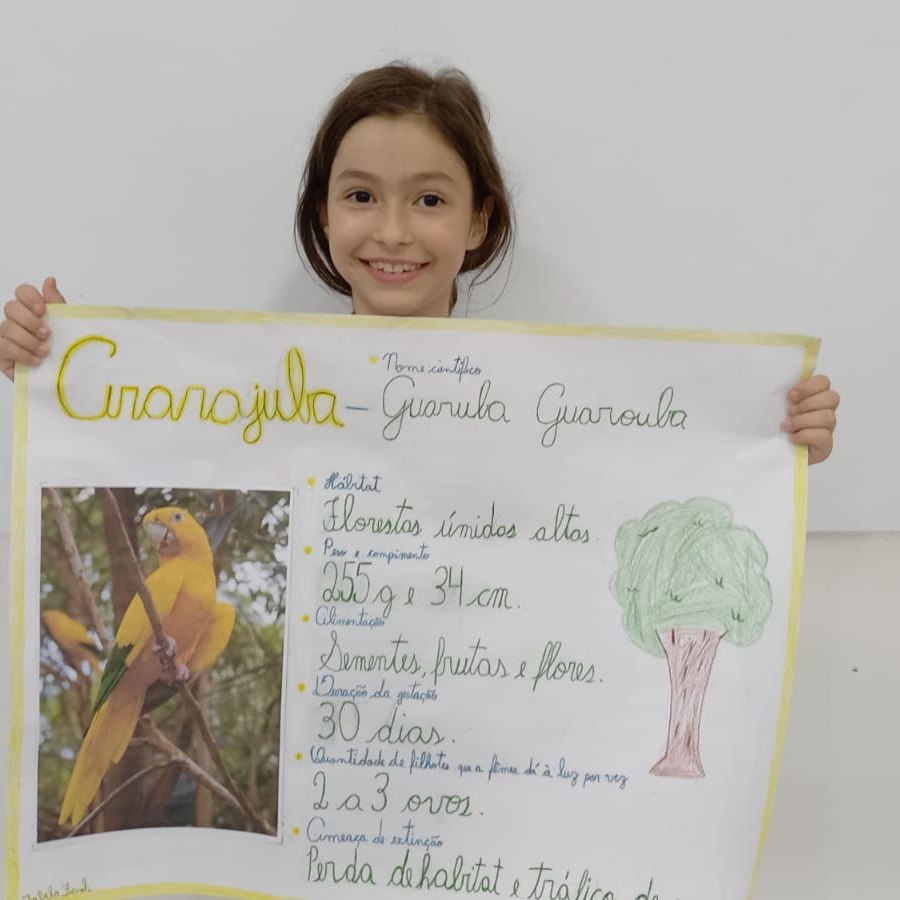 Ararajuba –
Nome científico
Guaruba Guarouba
Hábitat
Florestas úmidas altas.
Peso e compimento
255g e 34 cm.
Alimentação
Sementes, frutas e flores.
Duração da gestação
30 dias.
Quantidade de filhotes que a fêmea dá à luz por vez
2 a 3 ovos.
Ameaça de extinção
Perda de habitat e tráfico de